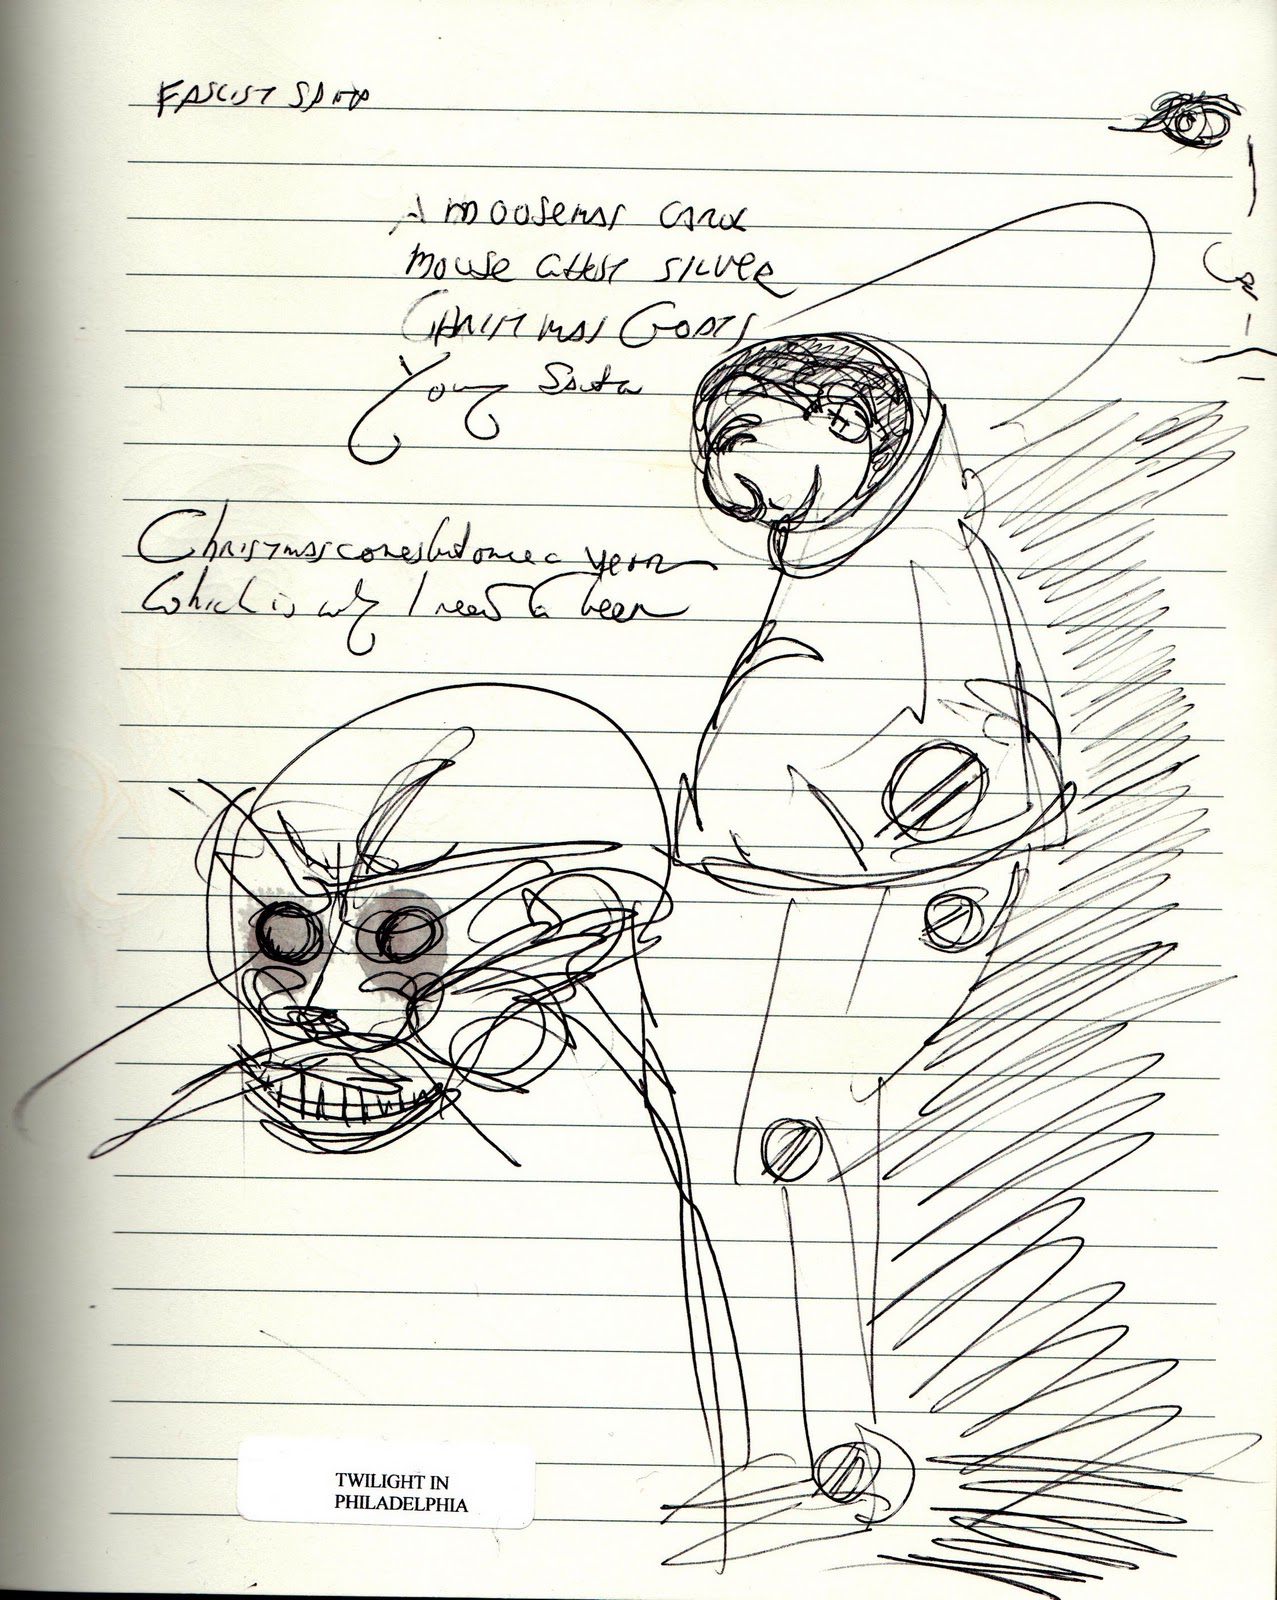 FASCIST SANTA
A MOOSEMAS CAROL
MOUSE SILVER
CHRISTMAS GOATS
Young Santa
Christmas comes but once a year
Which is why I need a beer
TWILIGHT IN
PHILADELPHIA